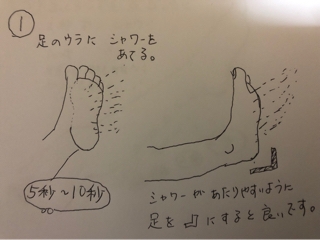 ①
足のウラに シャワーを
あてる。
5秒〜10秒
シャワーがあたりやすいように
足を にすると良いです。